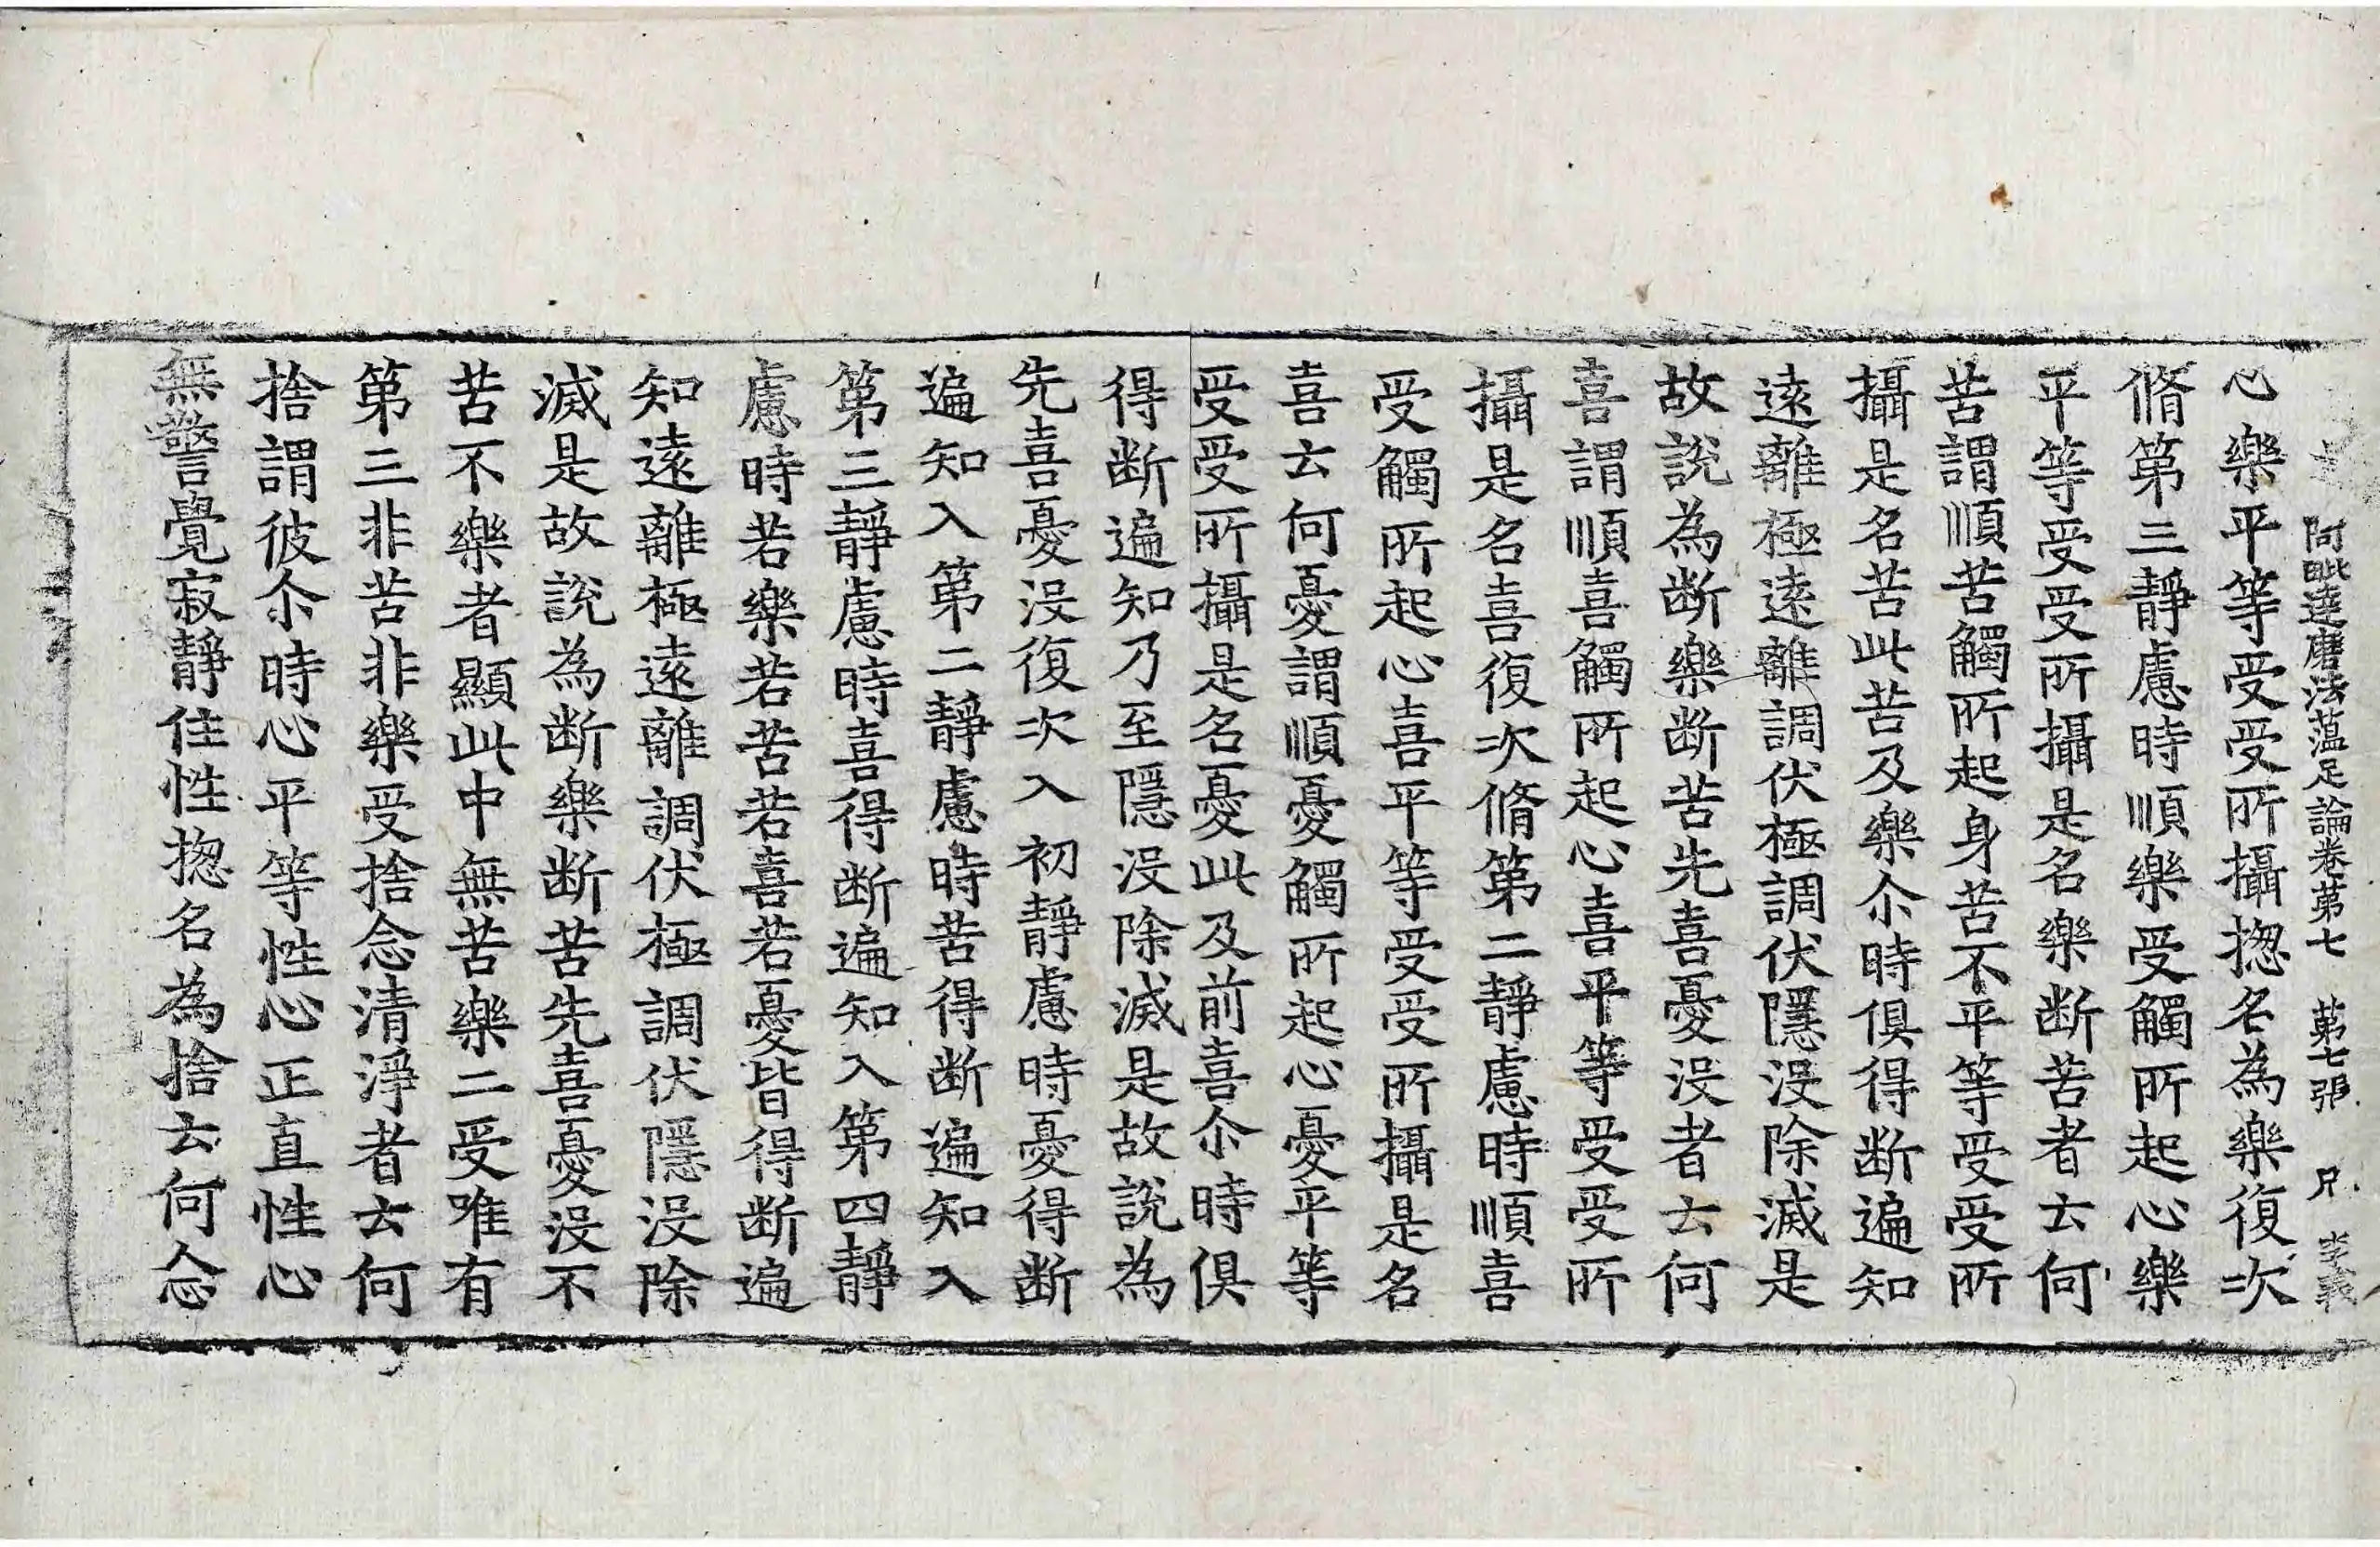 阿毗達磨法蘊足論卷第七 第七張 兄 李義
心樂平等受受所攝揔名為樂復次
脩第三靜慮時順樂受觸所起心樂
平等受受所攝是名樂断苦者云何
苦謂順苦觸所起身苦不平等受受所
攝是名苦此苦及樂尒時俱得断遍知
遠離極遠離調伏極調伏隱没除滅是
故說為断樂断苦先喜憂没者云何
喜謂順喜觸所起心喜平等受受所
攝是名喜復次脩第二靜慮時順喜
受觸所起心喜平等受受所攝是名
喜云何憂謂順憂觸所起心憂平等
受受所攝是名憂此及前喜尒時俱
得断遍知乃至隱没除滅是故說為
先喜憂没復次入初靜慮時憂得断
遍知入第二靜慮時苦得断遍知入
第三靜慮時喜得断遍知入第四靜
慮時若樂若苦若喜若憂皆得断遍
知遠離極遠離調伏極調伏隱没除
滅是故說為断樂断苦先喜憂没不
苦不樂者顯此中無苦樂二受唯有
第三非苦非樂受捨念清淨者云何
捨謂彼尒時心平等性心正直性心
無警覺寂靜住性揔名為捨云何念